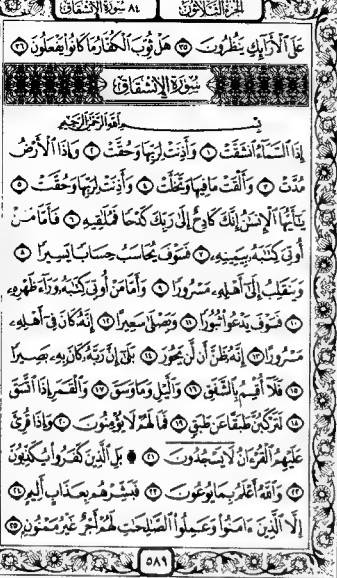 الجزء الثلاثون ٨٤ سورة الانشقاق
عَلَى ٱلْأَرَآئِكِ يَنظُرُونَ ٣٥ هَلْ ثُوِّبَ ٱلْكُفَّارُ مَا كَانُوا۟ يَفْعَلُونَ ٣٦
سُورَةُ الانْشِقَاقِ
بِسْمِ ٱللَّهِ ٱلرَّحْمَٰنِ ٱلرَّحِيمِ
إِذَا ٱلسَّمَآءُ ٱنشَقَّتْ ١ وَأَذِنَتْ لِرَبِّهَا وَحُقَّتْ ٢ وَإِذَا ٱلْأَرْضُ
مُدَّتْ ٣ وَأَلْقَتْ مَا فِيهَا وَتَخَلَّتْ ٤ وَأَذِنَتْ لِرَبِّهَا وَحُقَّتْ ٥
يَٰٓأَيُّهَا ٱلْإِنسَٰنُ إِنَّكَ كَادِحٌ إِلَىٰ رَبِّكَ كَدْحًا فَمُلَٰقِيهِ ٦ فَأَمَّا مَنْ
أُوتِىَ كِتَٰبَهُۥ بِيَمِينِهِۦ ٧ فَسَوْفَ يُحَاسَبُ حِسَابًا يَسِيرًا ٨
وَيَنقَلِبُ إِلَىٰٓ أَهْلِهِۦ مَسْرُورًا ٩ وَأَمَّا مَنْ أُوتِىَ كِتَٰبَهُۥ وَرَآءَ ظَهْرِهِۦ
١٠ فَسَوْفَ يَدْعُوا۟ ثُبُورًا ١١ وَيَصْلَىٰ سَعِيرًا ١٢ إِنَّهُۥ كَانَ فِىٓ أَهْلِهِۦ
مَسْرُورًا ١٣ إِنَّهُۥ ظَنَّ أَن لَّن يَحُورَ ١٤ بَلَىٰٓ إِنَّ رَبَّهُۥ كَانَ بِهِۦ بَصِيرًا
١٥ فَلَآ أُقْسِمُ بِٱلشَّفَقِ ١٦ وَٱلَّيْلِ وَمَا وَسَقَ ١٧ وَٱلْقَمَرِ إِذَا ٱتَّسَقَ
١٨ لَتَرْكَبُنَّ طَبَقًا عَن طَبَقٍ ١٩ فَمَا لَهُمْ لَا يُؤْمِنُونَ ٢٠ وَإِذَا قُرِئَ
عَلَيْهِمُ ٱلْقُرْءَانُ لَا يَسْجُدُونَ ۩ ٢١ بَلِ ٱلَّذِينَ كَفَرُوا۟ يُكَذِّبُونَ
٢٢ وَٱللَّهُ أَعْلَمُ بِمَا يُوعُونَ ٢٣ فَبَشِّرْهُم بِعَذَابٍ أَلِيمٍ ٢٤
إِلَّا ٱلَّذِينَ ءَامَنُوا۟ وَعَمِلُوا۟ ٱلصَّٰلِحَٰتِ لَهُمْ أَجْرٌ غَيْرُ مَمْنُونٍۭ ٢٥
٥٨٩